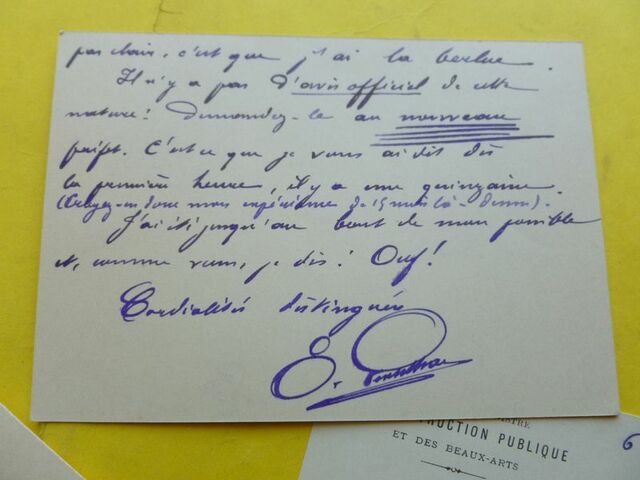 pas clair, c'est que j'ai la berlue.
Il n'y a pas d'avis officiel de cette
nature! Demandez-le au nouveau
préfet. C'est ce que je vous ai dit dès
la première heure, il y a une quinzaine.
(Croyez-en donc mon expérience de 15 mois là-dessus).
J'ai été jusqu'au bout de mon possible
et, comme vous, je dis: Ouf!
Cordialités distinguées
E.
RUCTION PUBLIQUE
ET DES BEAUX-ARTS
6